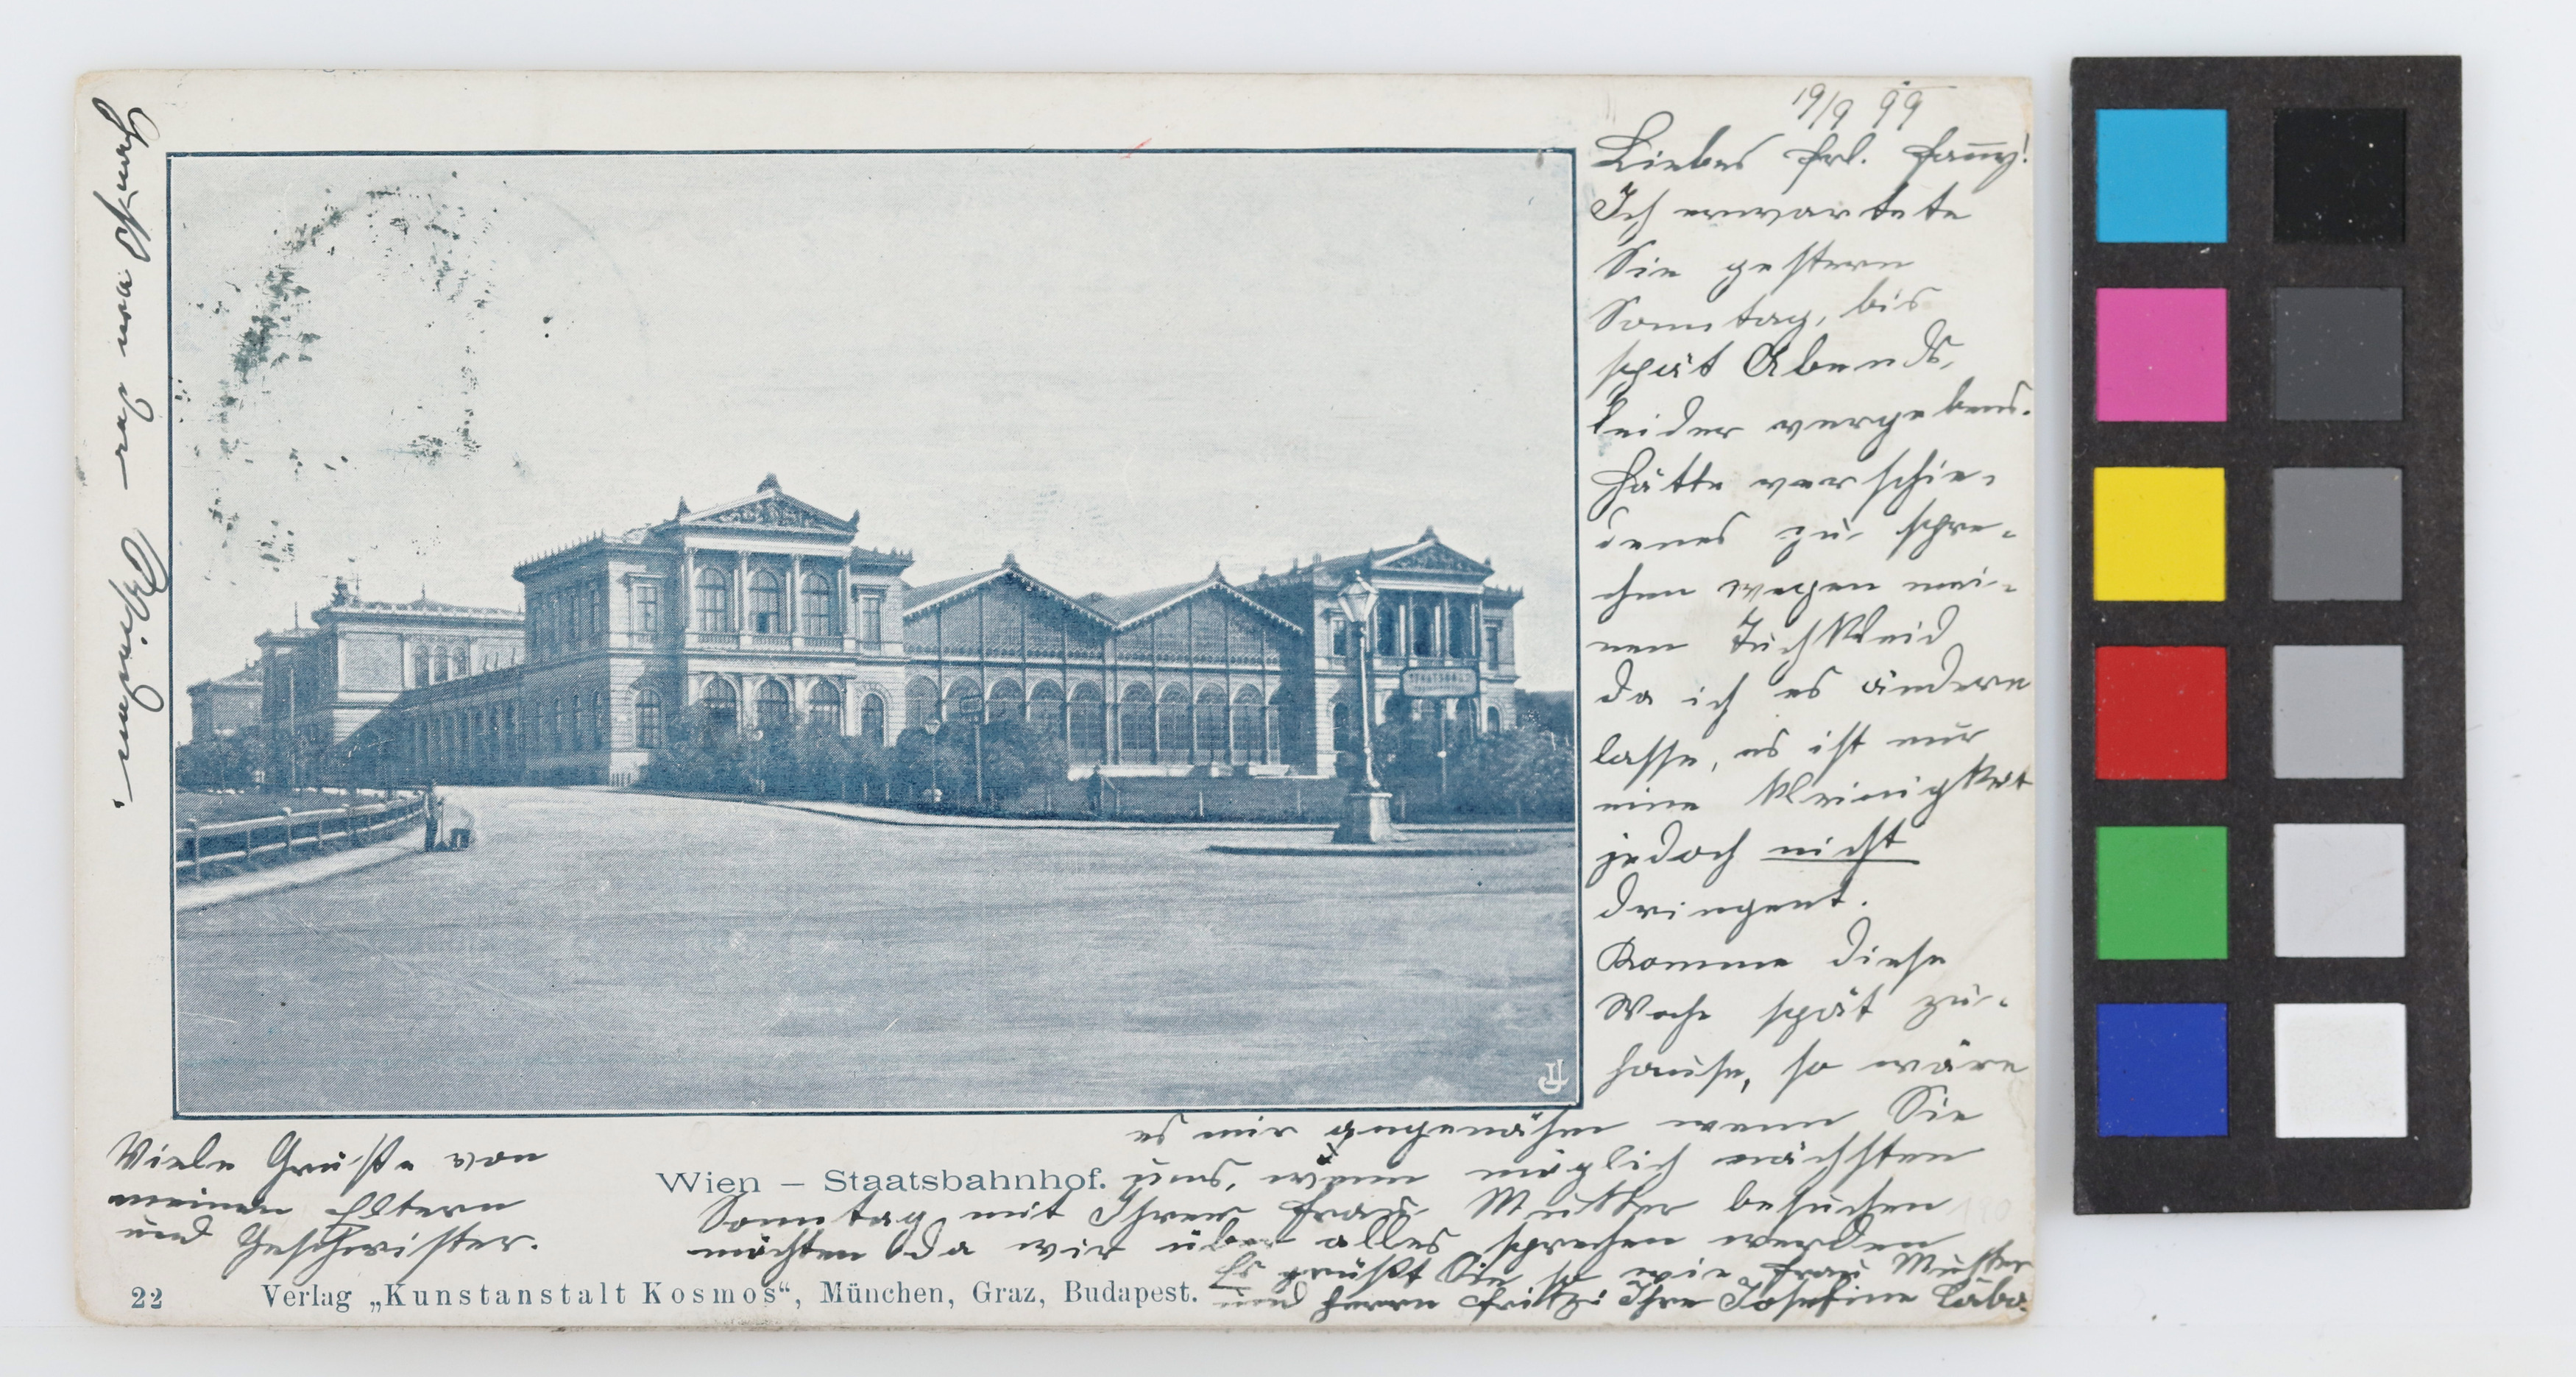 19/9 99
Liebes Frl. Fanny!
Ich erwartete
Sie gestern
Sonntag, bis
spät Abends,
leider vergebens.
Hätte verschie-
denes zu spre-
chen wegen mei-
nen Tuchkleid
da ich es ändern
lasse, es ist nur
eine Kleinigkeit
jedoch nicht
dringent.
Komme diese
Woche spät zu-
hause, so wäre
es mir angenähm wenn Sie
uns, wenn möglich nächsten
Sonntag mit Ihrer Frau Mutter besuchen
möchten da wir über alles sprechen werden
Es grüßt Sie so wie Frau Mutter
und Herrn Fritz: Ihre Josefine
Viele Grüße von
meinen Eltern
und Geschwister.
von der
STAATSBAHN
JL
Wien – Staatsbahnhof.
22 Verlag „Kunstanstalt Kosmos“, München, Graz, Budapest.